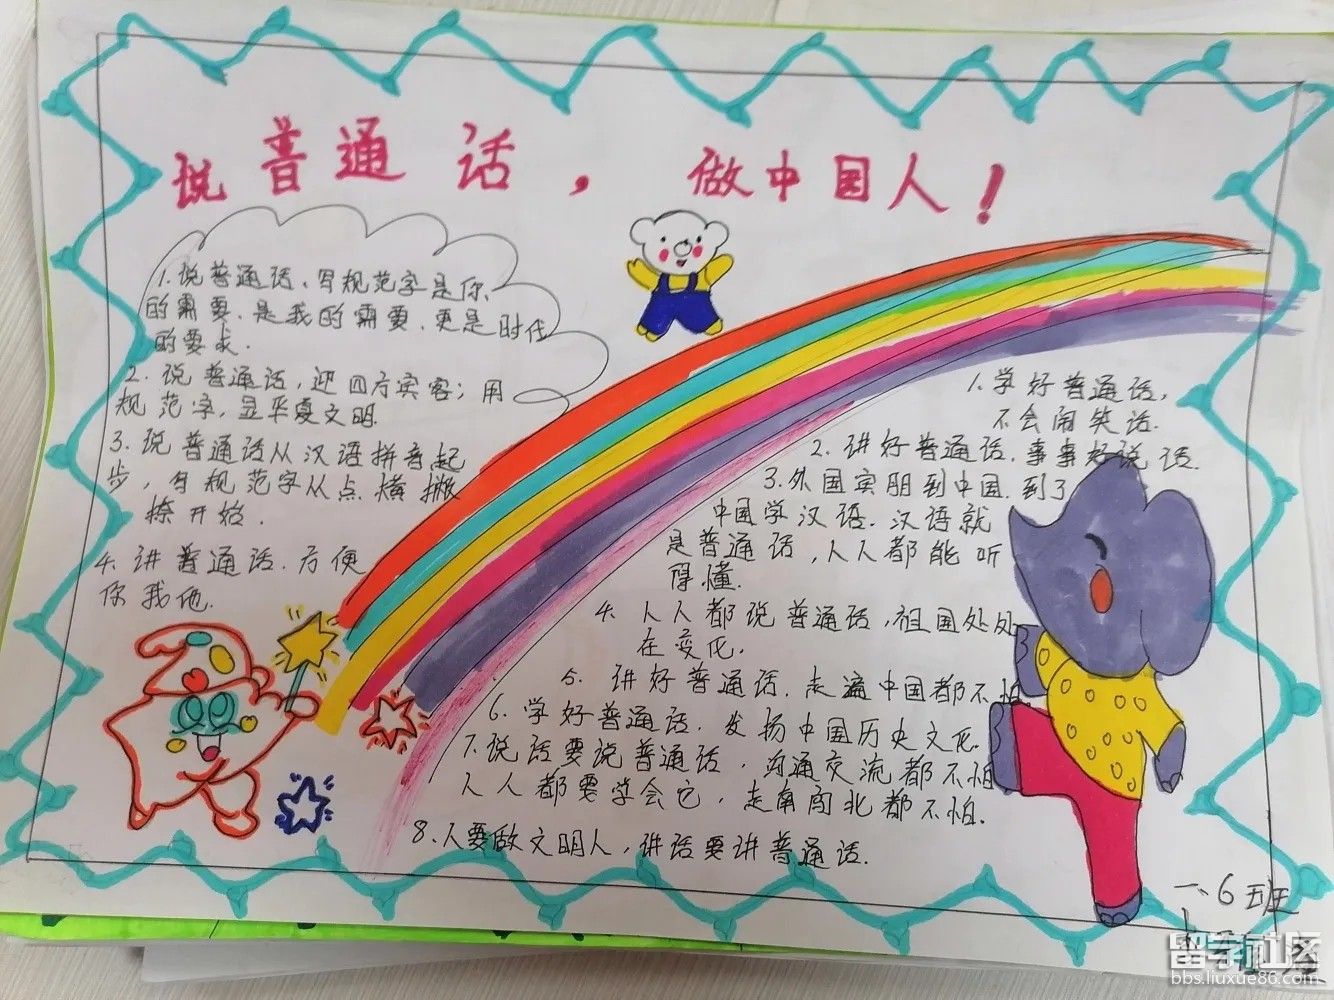 说普通话，做中国人！
1.说普通话、写规范字是你
的需要.是我的需要.更是时代
的要求.
2.说普通话，迎四方宾客；用
规范字，显华夏文明.
3.说普通话从汉语拼音起
步，写规范字从点横撇
捺开始.
4.讲普通话.方便
你我他.
1.学好普通话，
不会闹笑话.
2.讲好普通话.事事好说话.
3.外国宾朋到中国.到了
中国学汉语.汉语就
是普通话，人人都能听
得懂.
4.人人都说普通话，祖国处处
在变化.
5.讲好普通话.走遍中国都不怕
6.学好普通话.发扬中国历史文化.
7.说话要说普通话，沟通交流都不怕
人人都要学会它，走南闯北都不怕.
8.人要做文明人，讲话要讲普通话.
一、6班
留学社区
bbs.liuxue86.com